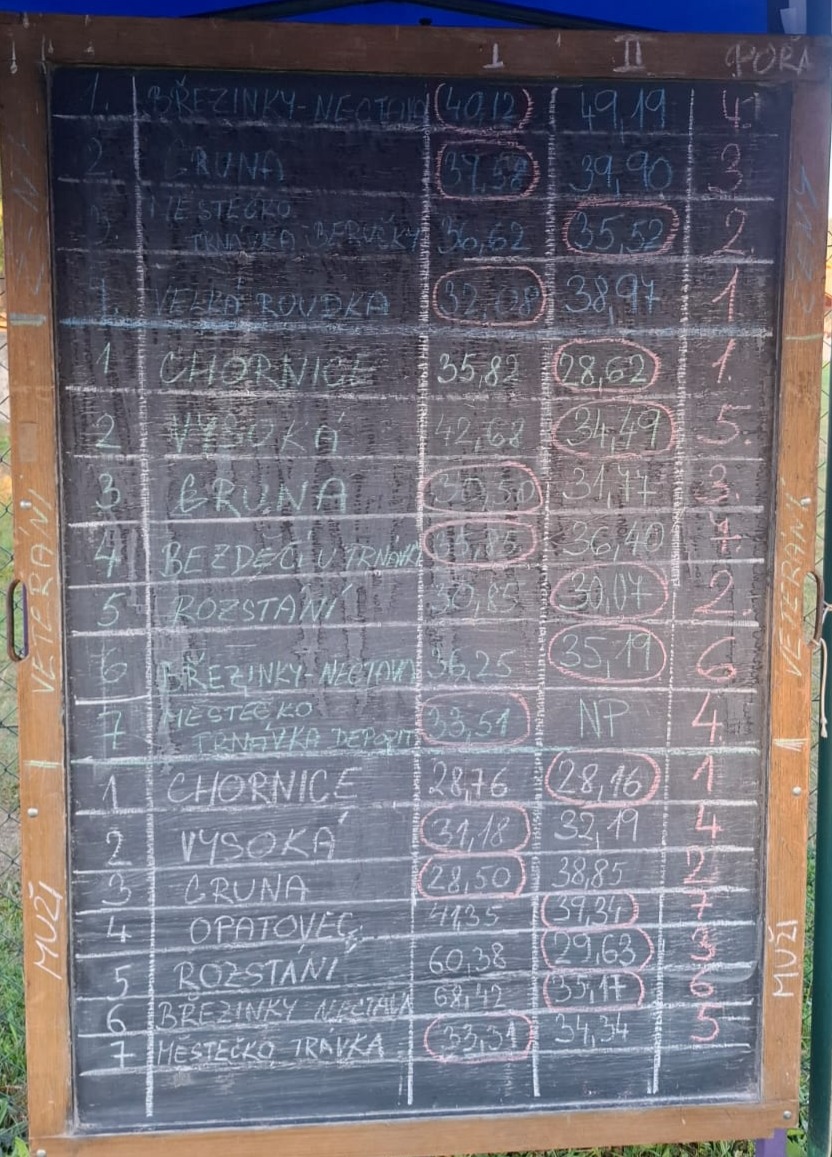 I II POŘA
1. BŘEZINKY-NECTAVA 40,12 49,19 4.
2. GRUNA 37,58 39,90 3
MĚSTEČKO
TRNÁVKA BERUŠKY 36,62 35,52 2.
VELKÁ ROUDKA 32,08 38,97 1
1 CHORNICE 35,82 28,62 1.
2 VYSOKÁ 42,68 34,49 5.
3. GRUNA 30,50 31,77 3.
4 BEZDĚČÍ U TRNÁVKY 35,85 36,40 7.
5 ROZSTÁNÍ 30,85 30,07 2.
6 BŘEZINKY-NECTAVA 36,25 35,19 6
MĚSTEČKO
7 TRNÁVKA DEPOZIT 33,51 NP 4.
1 CHORNICE 28,76 28,16 1
2 VYSOKÁ 31,18 32,19 4
3 GRUNA 28,50 38,85 2
4 OPATOVEC 41,35 39,34 7
5 ROZSTÁNÍ 60,38 29,63 3
6 BŘEZINKY NECTAVA 68,42 35,17 6
7 MĚSTEČKO TRÁVKA 33,31 34,34 5
VETERÁNI
MUŽI
ŽENY
VETERÁNI
MUŽI